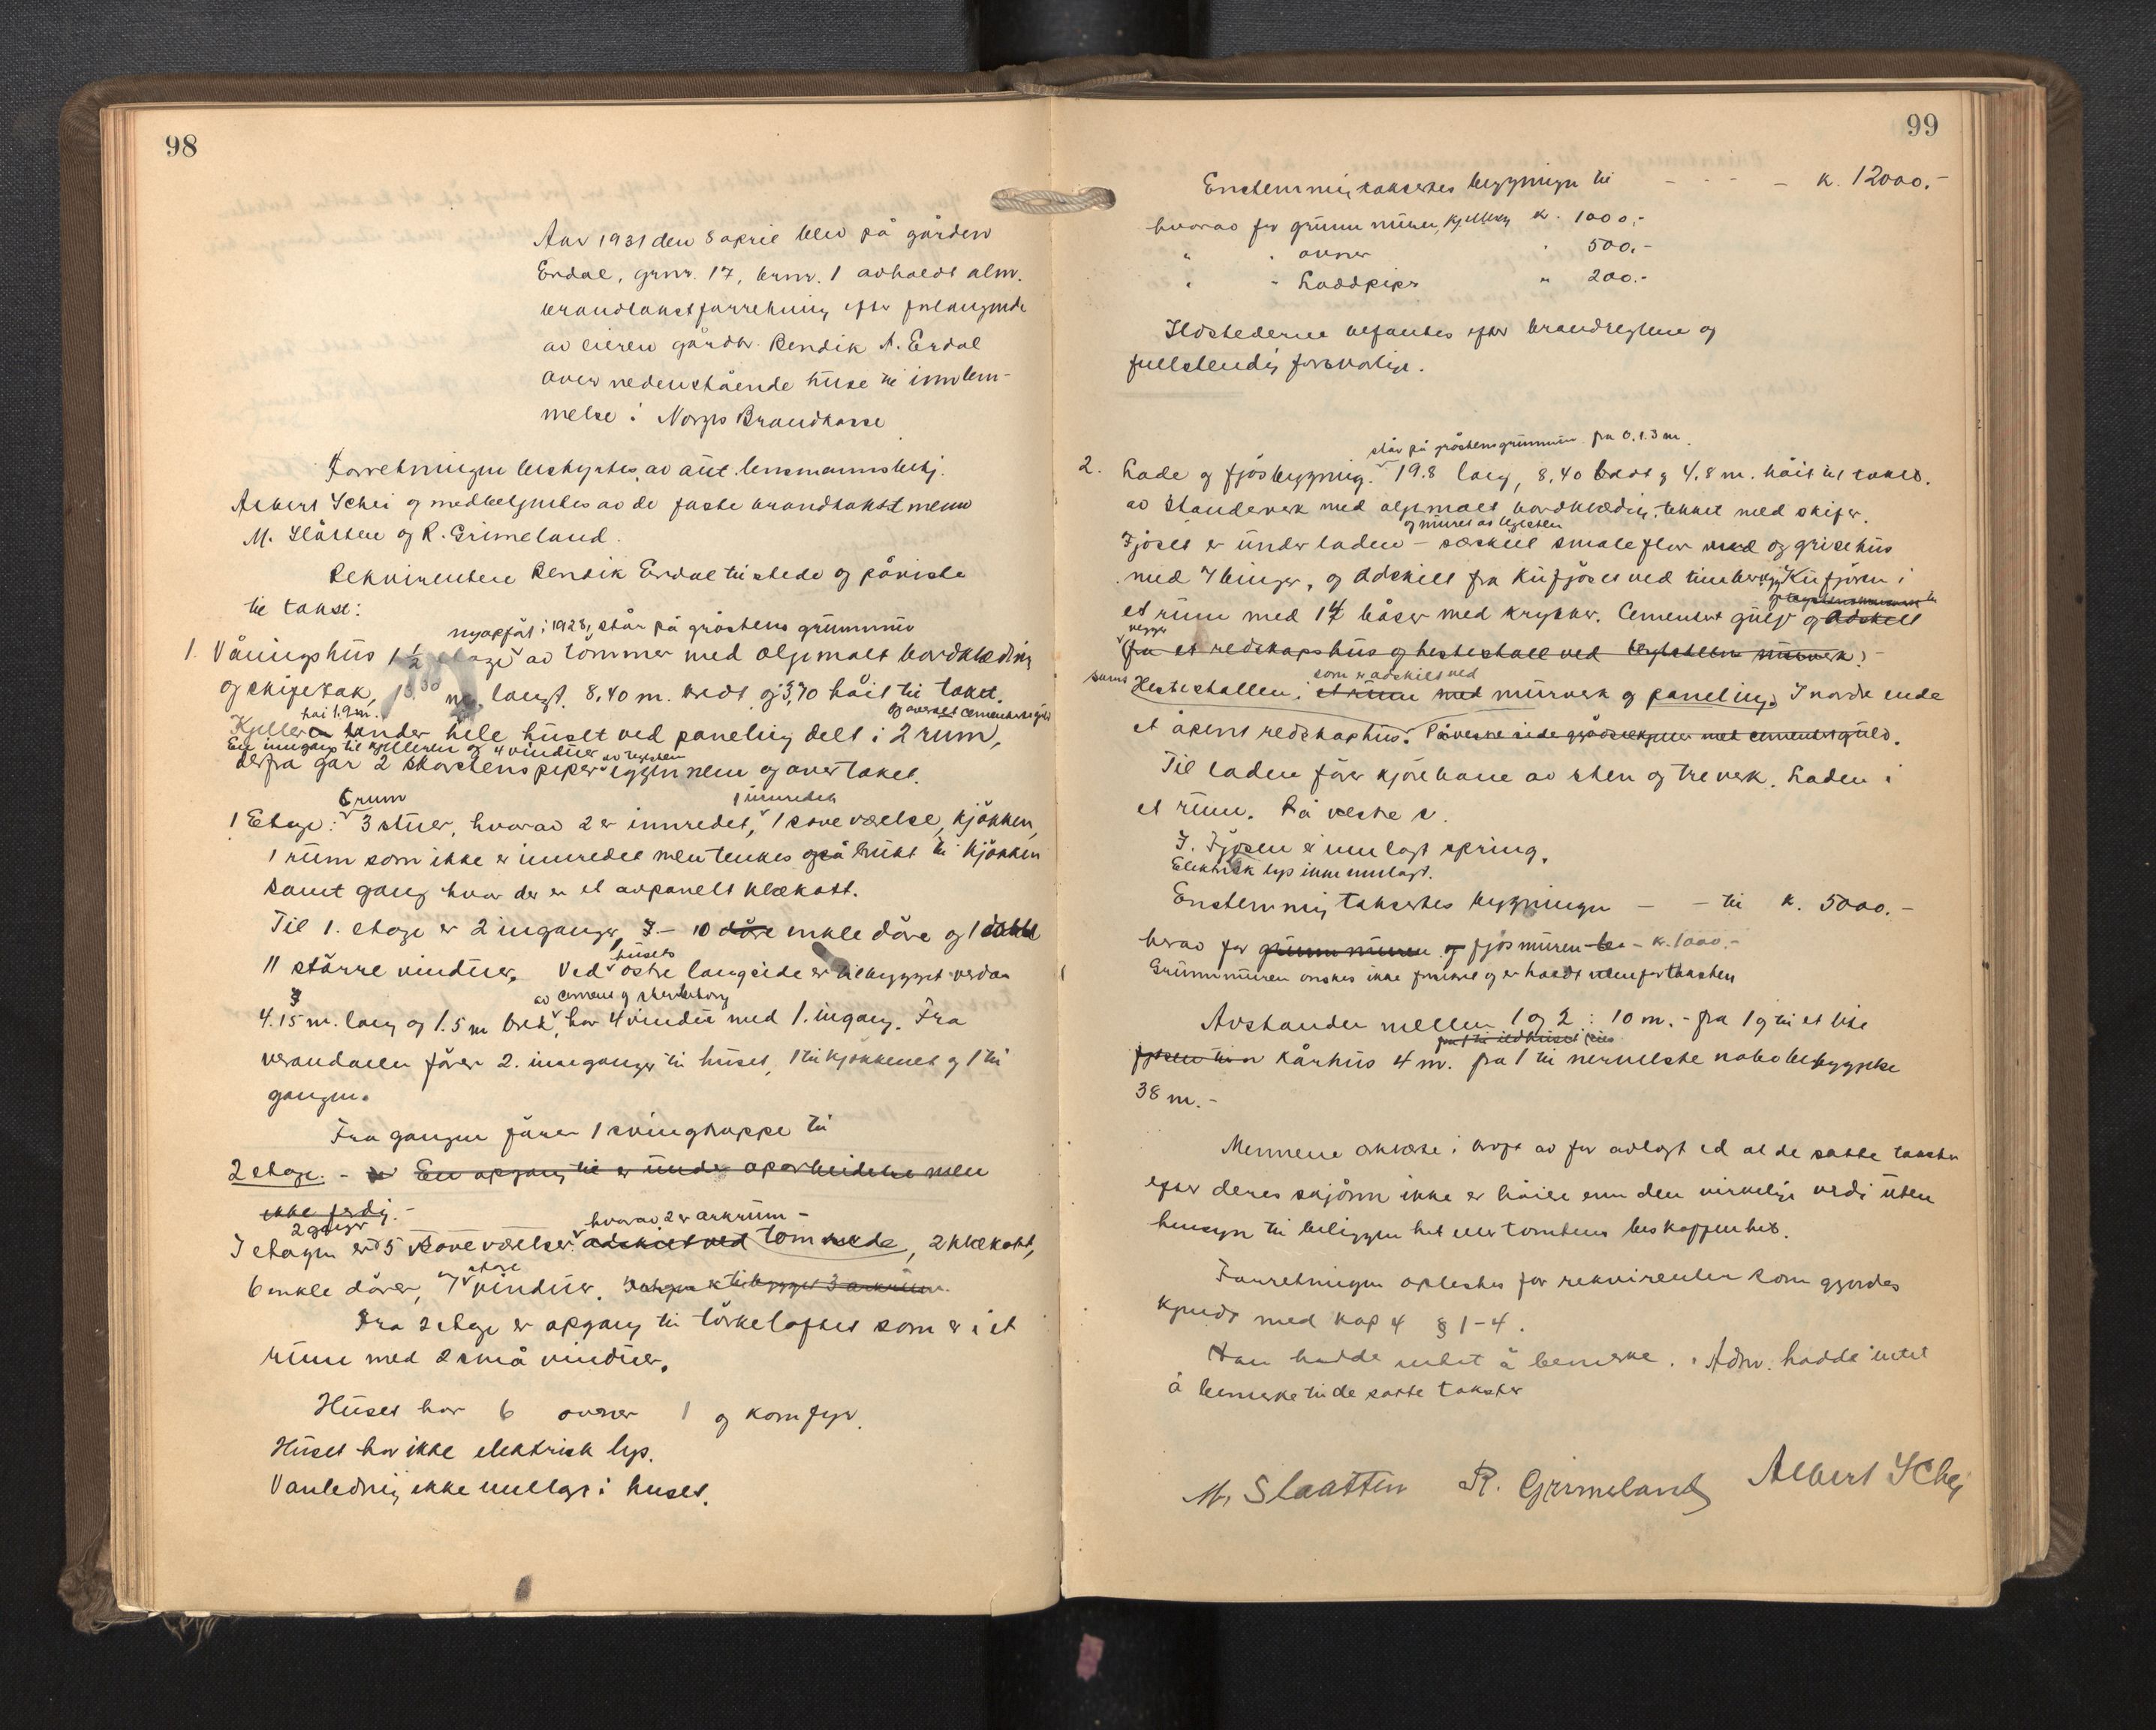 98
Aar 1931 den 8 april blev på gården
Erdal, grnr. 17, brnr. 1 avholdt alm.
brandtakstforretning efter forlangende
av eieren gårdbr. Bendik A. Erdal
over nedenstående huse til innlem-
melse i Norges Brandkasse
Forretningen bestyrtes av aut. lensmannsbetj.
Albert Schei og medbetjentes av de faste brandtakstmenn
M. Slåtten og R. Grimeland.
Rekvirenten Bendik Erdal tilstede og påviste
til takst:
nyopført i 1928, står på gråstens grunnmur
1. Våningshus 1 1/2 etage av tømmer med oljemalt bordklædning
og skifertak, langt, 8,40 m. bredt og 3,70 høit til taket.
høi 1.9 m. og overalt cementert gulv
Kjeller under hele huset ved paneling delt i 2 rum,
En inngang til kjelleren og 4 vinduer av teglsten
derfra går 2 skorstenspiper og over taket.
6 rum 1 innredet
1 Etage: 3 stuer, hvorav 2 er innredet, 1 soveværelse, kjøkken,
1 rum som ikke er innredet men tenkes også brukt til kjøkken
samt gang hvor der er et avpanelt klækott.
Til 1. etage er 2 innganger, 10 døre enkle døre og 1 dobbel
11 større vinduer. Ved husets østre langside er tilbygget veranda
av cement og
4.15 m. lang og 1.5 m bred, har 4 vindu med 1. ingang. Fra
verandaen fører 2. innganger til huset, 1 til kjøkkenet og 1 til
gangen.
Fra gangen fører 1 svingtrappe til
2 etage. - En opgang til er under oparbeidelse men
ikke ferdig.-
2 ganger hvorav 2 er arkrum -
I etagen er 5 soveværelser adskilt ved tom , 2 klækott,
6 enkle dører, 7 større vinduer. tilbygget 3 arkrum.
Fra 2 etage er opgang til tørkeloftet som er i et
rum med 2 små vinduer.
Huset har 6 ovner 1 og komfyr.
Huset har ikke elektrisk lys.
Vanledning ikke innlagt i huset.
99
Enstemmig takseres bygningen til - - - - k. 12000.-
hvorav for grunnmuren, kjelleren k. 1000.-
" " ovner " 500.-
" " Loddpiper " 200.-
Ildstederne befantes efter brandreglene og
fullstendig forsvarlige.
står på gråstensgrunnmur fra 0.1.3 m.
2. Lade og fjøsbygning. 19.8 lang, 8,40 bredt og 4.8 m. høit til taket.
av standerverk med oljemalt bordklædning, tekket med skifer.
og muret av teglsten
Fjøset er under laden - særskilt smalefløer med og grisehus
med 7 binger, og adskilt fra kufjøset ved Kufjøsen i
et rum med 14 båser med krybber. Cementert gulv og adskilt
vegger
fra et redskapshus og hestestall ved teglstens murverk.-
som er adskilt ved
samt Hestestallen. i et rum med murverk og paneling. I nordre ende
et åpent redskaphus. På vestre side med cementert gulv.
Til laden fører kjørebane av sten og treverk. Laden i
et rum. På vestre s.
I. Fjøsen er innlagt spring.
Elektrisk lys ikke innlagt.
Enstemmig takseres bygningen - - til k. 5000.-
hvrav for grunnmuren og fjøsmuren - k. 1000.-
Grunnmuren ønskes ikke forsikret og er holdt utenfor taksten
Avstanden mellem 1 og 2: 10 m. - fra 1 og til et lite
fra 1 til ildhuset
kårhus 4 m. fra 1 til nermeste nabobebyggelse
38 m.-
Mennene avhøre i kraft av før avlagt ed at de satte takster
efter deres skjønn ikke er høiere enn den virkelige verdi uten
hensyn til beliggenhet eller tomtens beskaffenhet.
Forretningen oplestes for rekvirenten som gjordes
kjendt med kap 4 § 1-4.
Han hadde intet å bemerke. Adm. hadde intet
å bemerke til de satte takster
M. Slaatten R. Grimeland Albert Schei